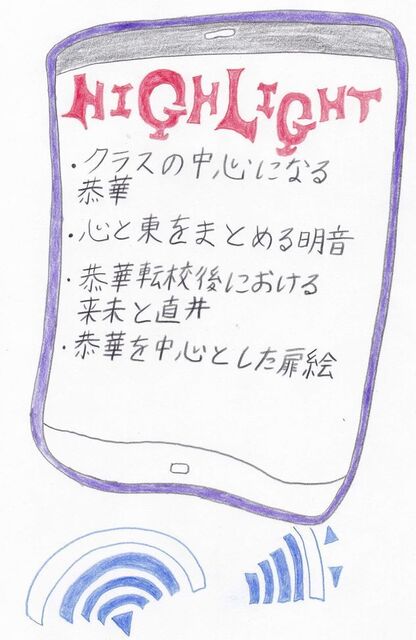 HIGHLIGHT
・クラスの中心になる
恭華
・心と東をまとめる明音
・恭華転校後における
来未と直井
・恭華を中心とした扉絵